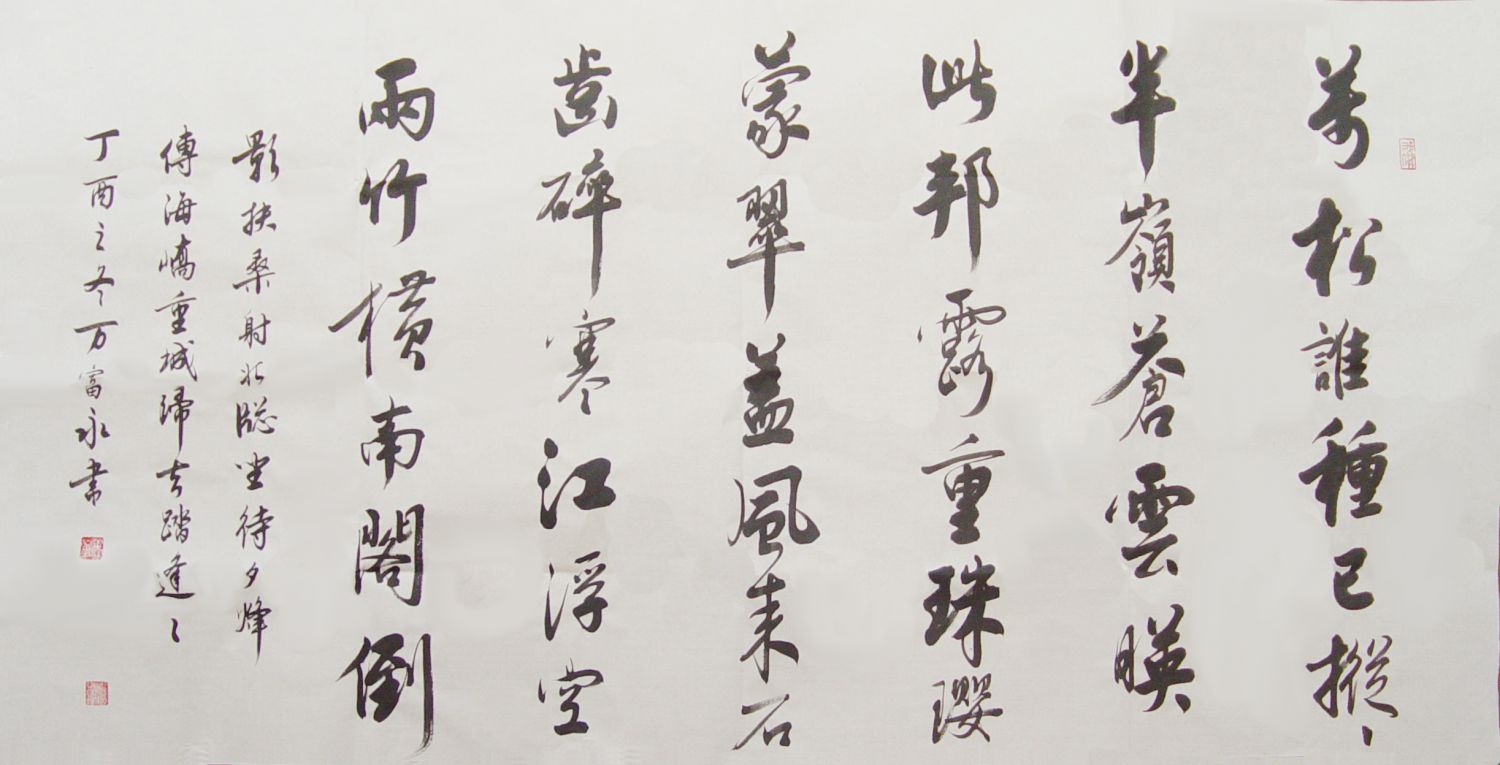 萬松誰種已摐〻
半嶺蒼雲暎
此邦露重珠瓔
蒙翠盖風来石
齒碎寒江浮空
兩竹橫南閣倒
影扶桑射北牕坐待夕烽
傳海嶠重城歸去踏逢〻
丁酉之冬万富永書